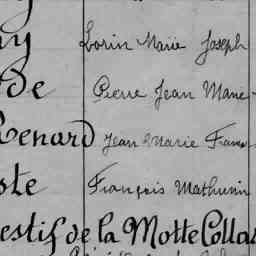 Lorin Marie Joseph
de Pierre Jean Marie
Renard Jean Marie Franç
ste François Mathurin
estif de la Motte Colla